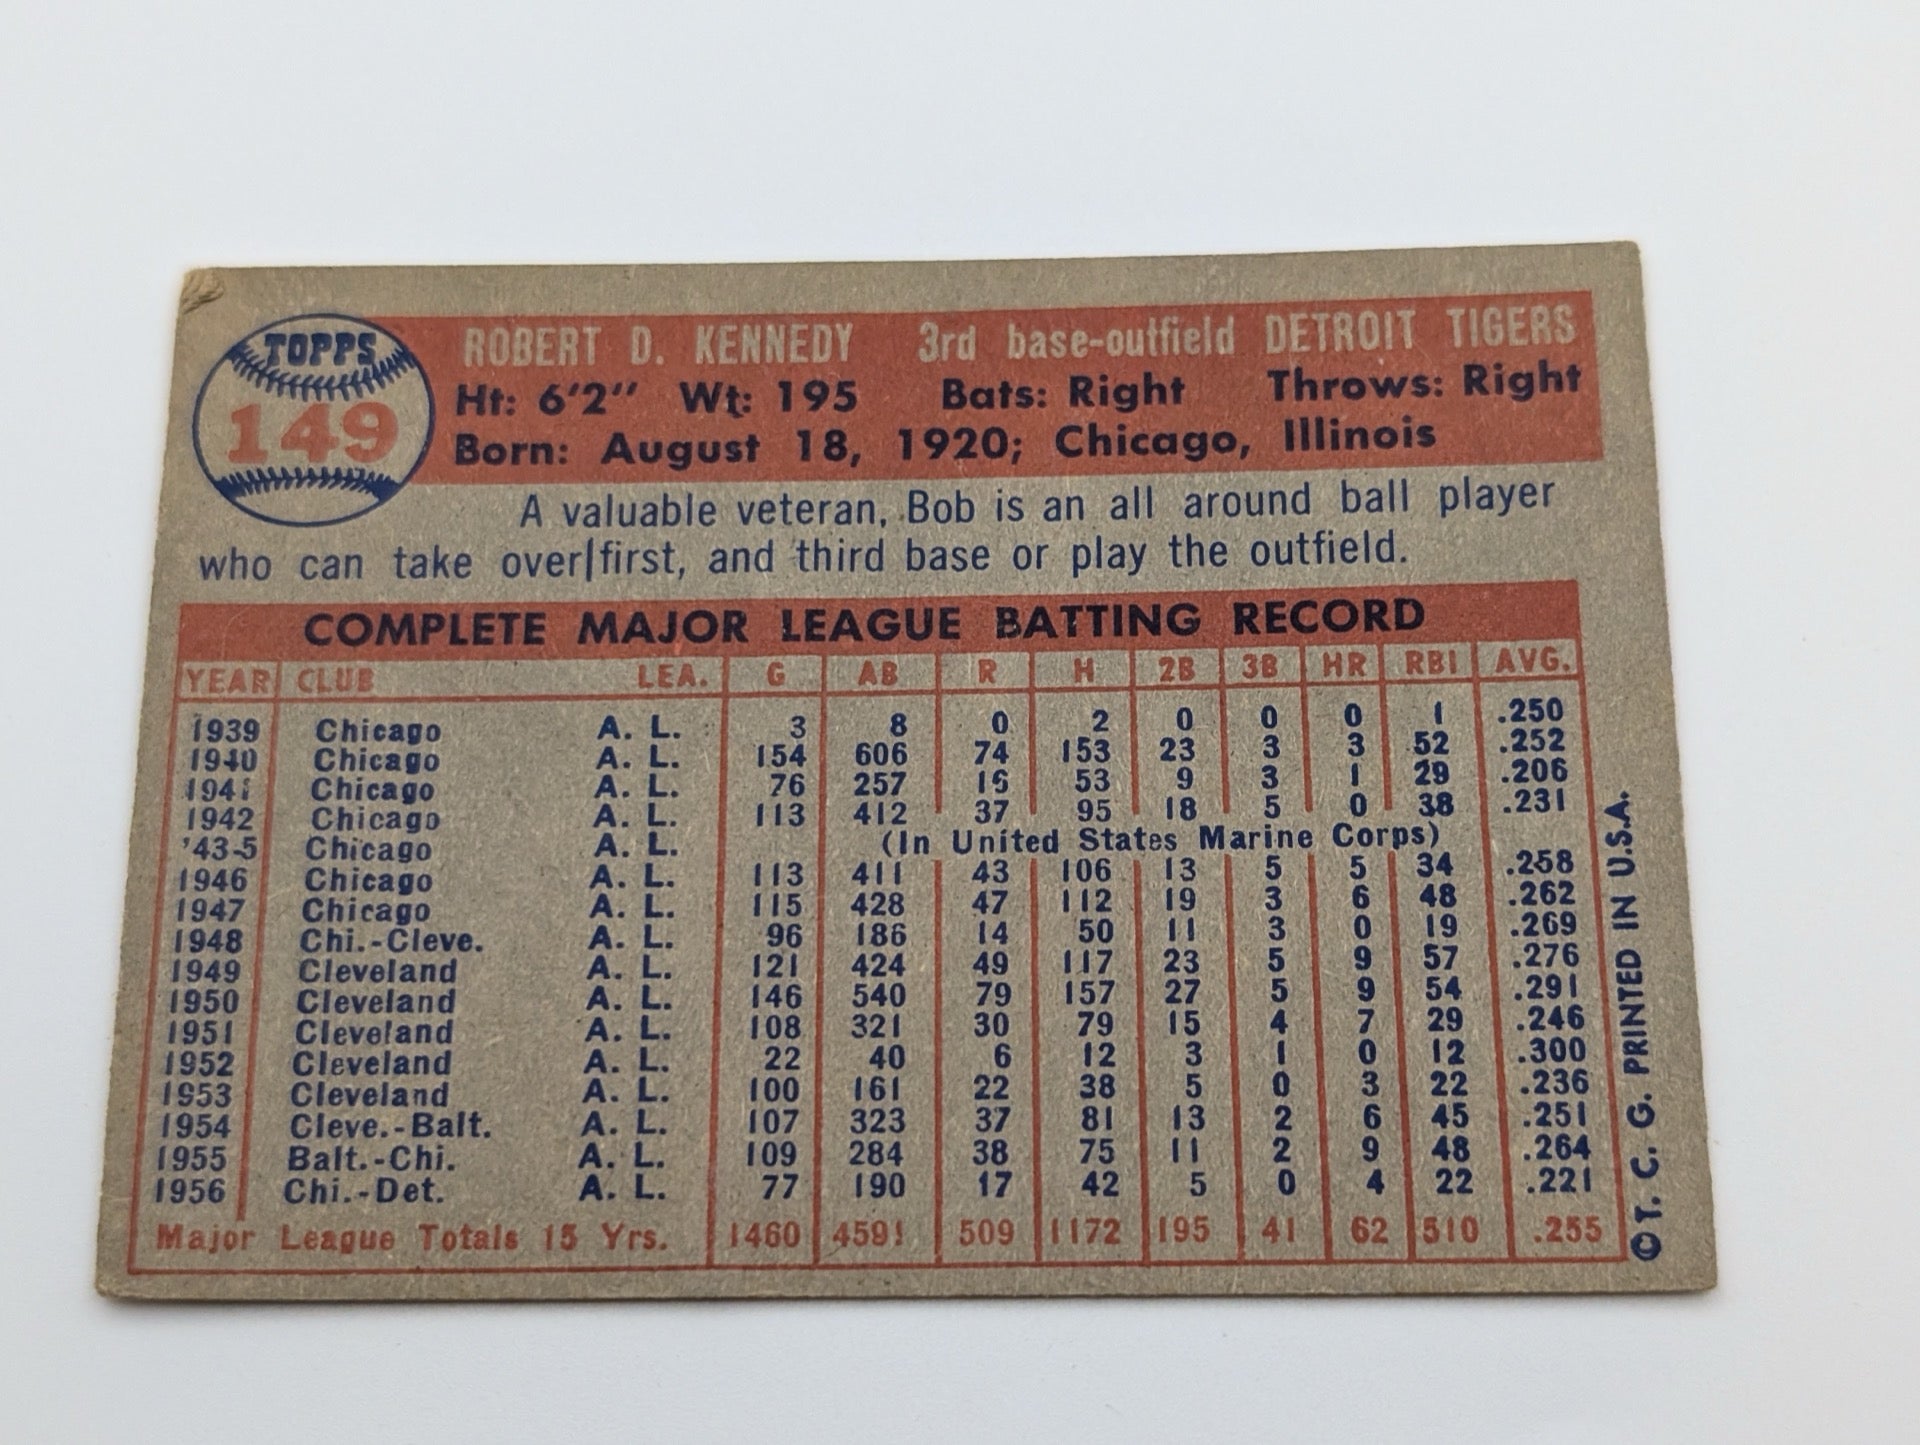 TOPPS
149
ROBERT D. KENNEDY 3rd base-outfield DETROIT TIGERS
Ht: 6'2" Wt: 195 Bats: Right Throws: Right
Born: August 18, 1920; Chicago, Illinois
A valuable veteran, Bob is an all around ball player
who can take over first, and third base or play the outfield.
COMPLETE MAJOR LEAGUE BATTING RECORD
YEAR CLUB LEA. G AB R H 2B 3B HR RBI AVG.
1939 Chicago A. L. 3 8 0 2 0 0 0 1 .250
1940 Chicago A. L. 154 606 74 153 23 3 3 52 .252
1941 Chicago A. L. 76 257 16 53 9 3 1 29 .206
1942 Chicago A. L. 113 412 37 95 18 5 0 38 .231
'43-5 Chicago A. L. (In United States Marine Corps)
1946 Chicago A. L. 113 411 43 106 13 5 5 34 .258
1947 Chicago A. L. 115 428 47 112 19 3 6 48 .262
1948 Chi.-Cleve. A. L. 96 186 14 50 11 3 0 19 .269
1949 Cleveland A. L. 121 424 49 117 23 5 9 57 .276
1950 Cleveland A. L. 146 540 79 157 27 5 9 54 .291
1951 Cleveland A. L. 108 321 30 79 15 4 7 29 .246
1952 Cleveland A. L. 22 40 6 12 3 1 0 12 .300
1953 Cleveland A. L. 100 161 22 38 5 0 3 22 .236
1954 Cleve.-Balt. A. L. 107 323 37 81 13 2 6 45 .251
1955 Balt.-Chi. A. L. 109 284 38 75 11 2 9 48 .264
1956 Chi.-Det. A. L. 77 190 17 42 5 0 4 22 .221
Major League Totals 15 Yrs. 1460 4591 509 1172 195 41 62 510 .255
© T. C. G. PRINTED IN U.S.A.